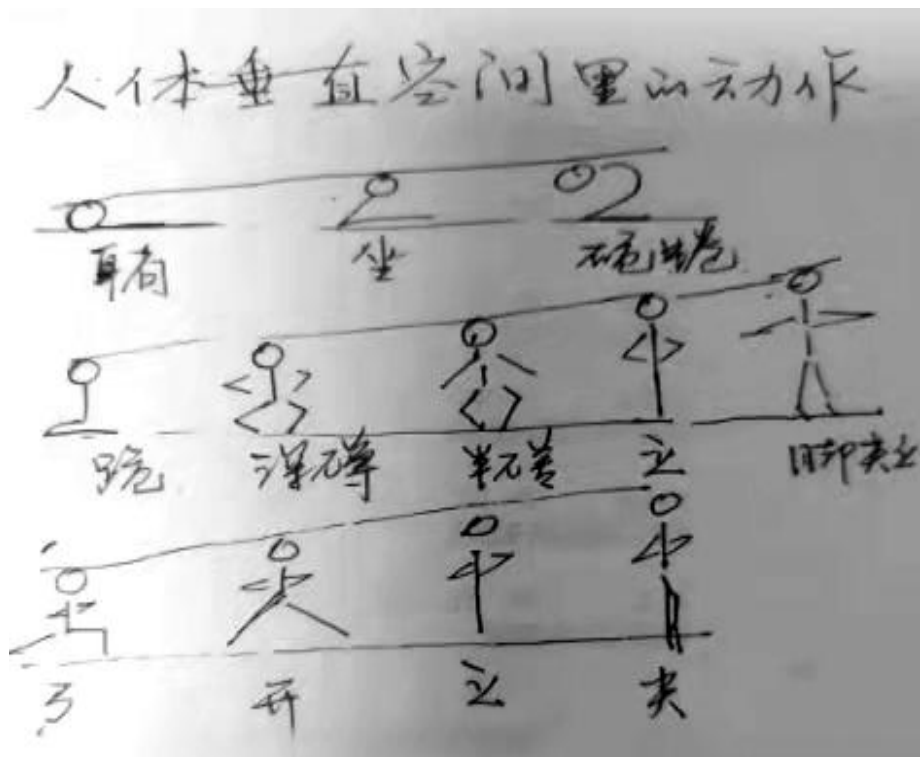 人体垂直空间里的动作
坐
跪 深蹲 半蹲 立 脚尖立
弓 开 立 尖